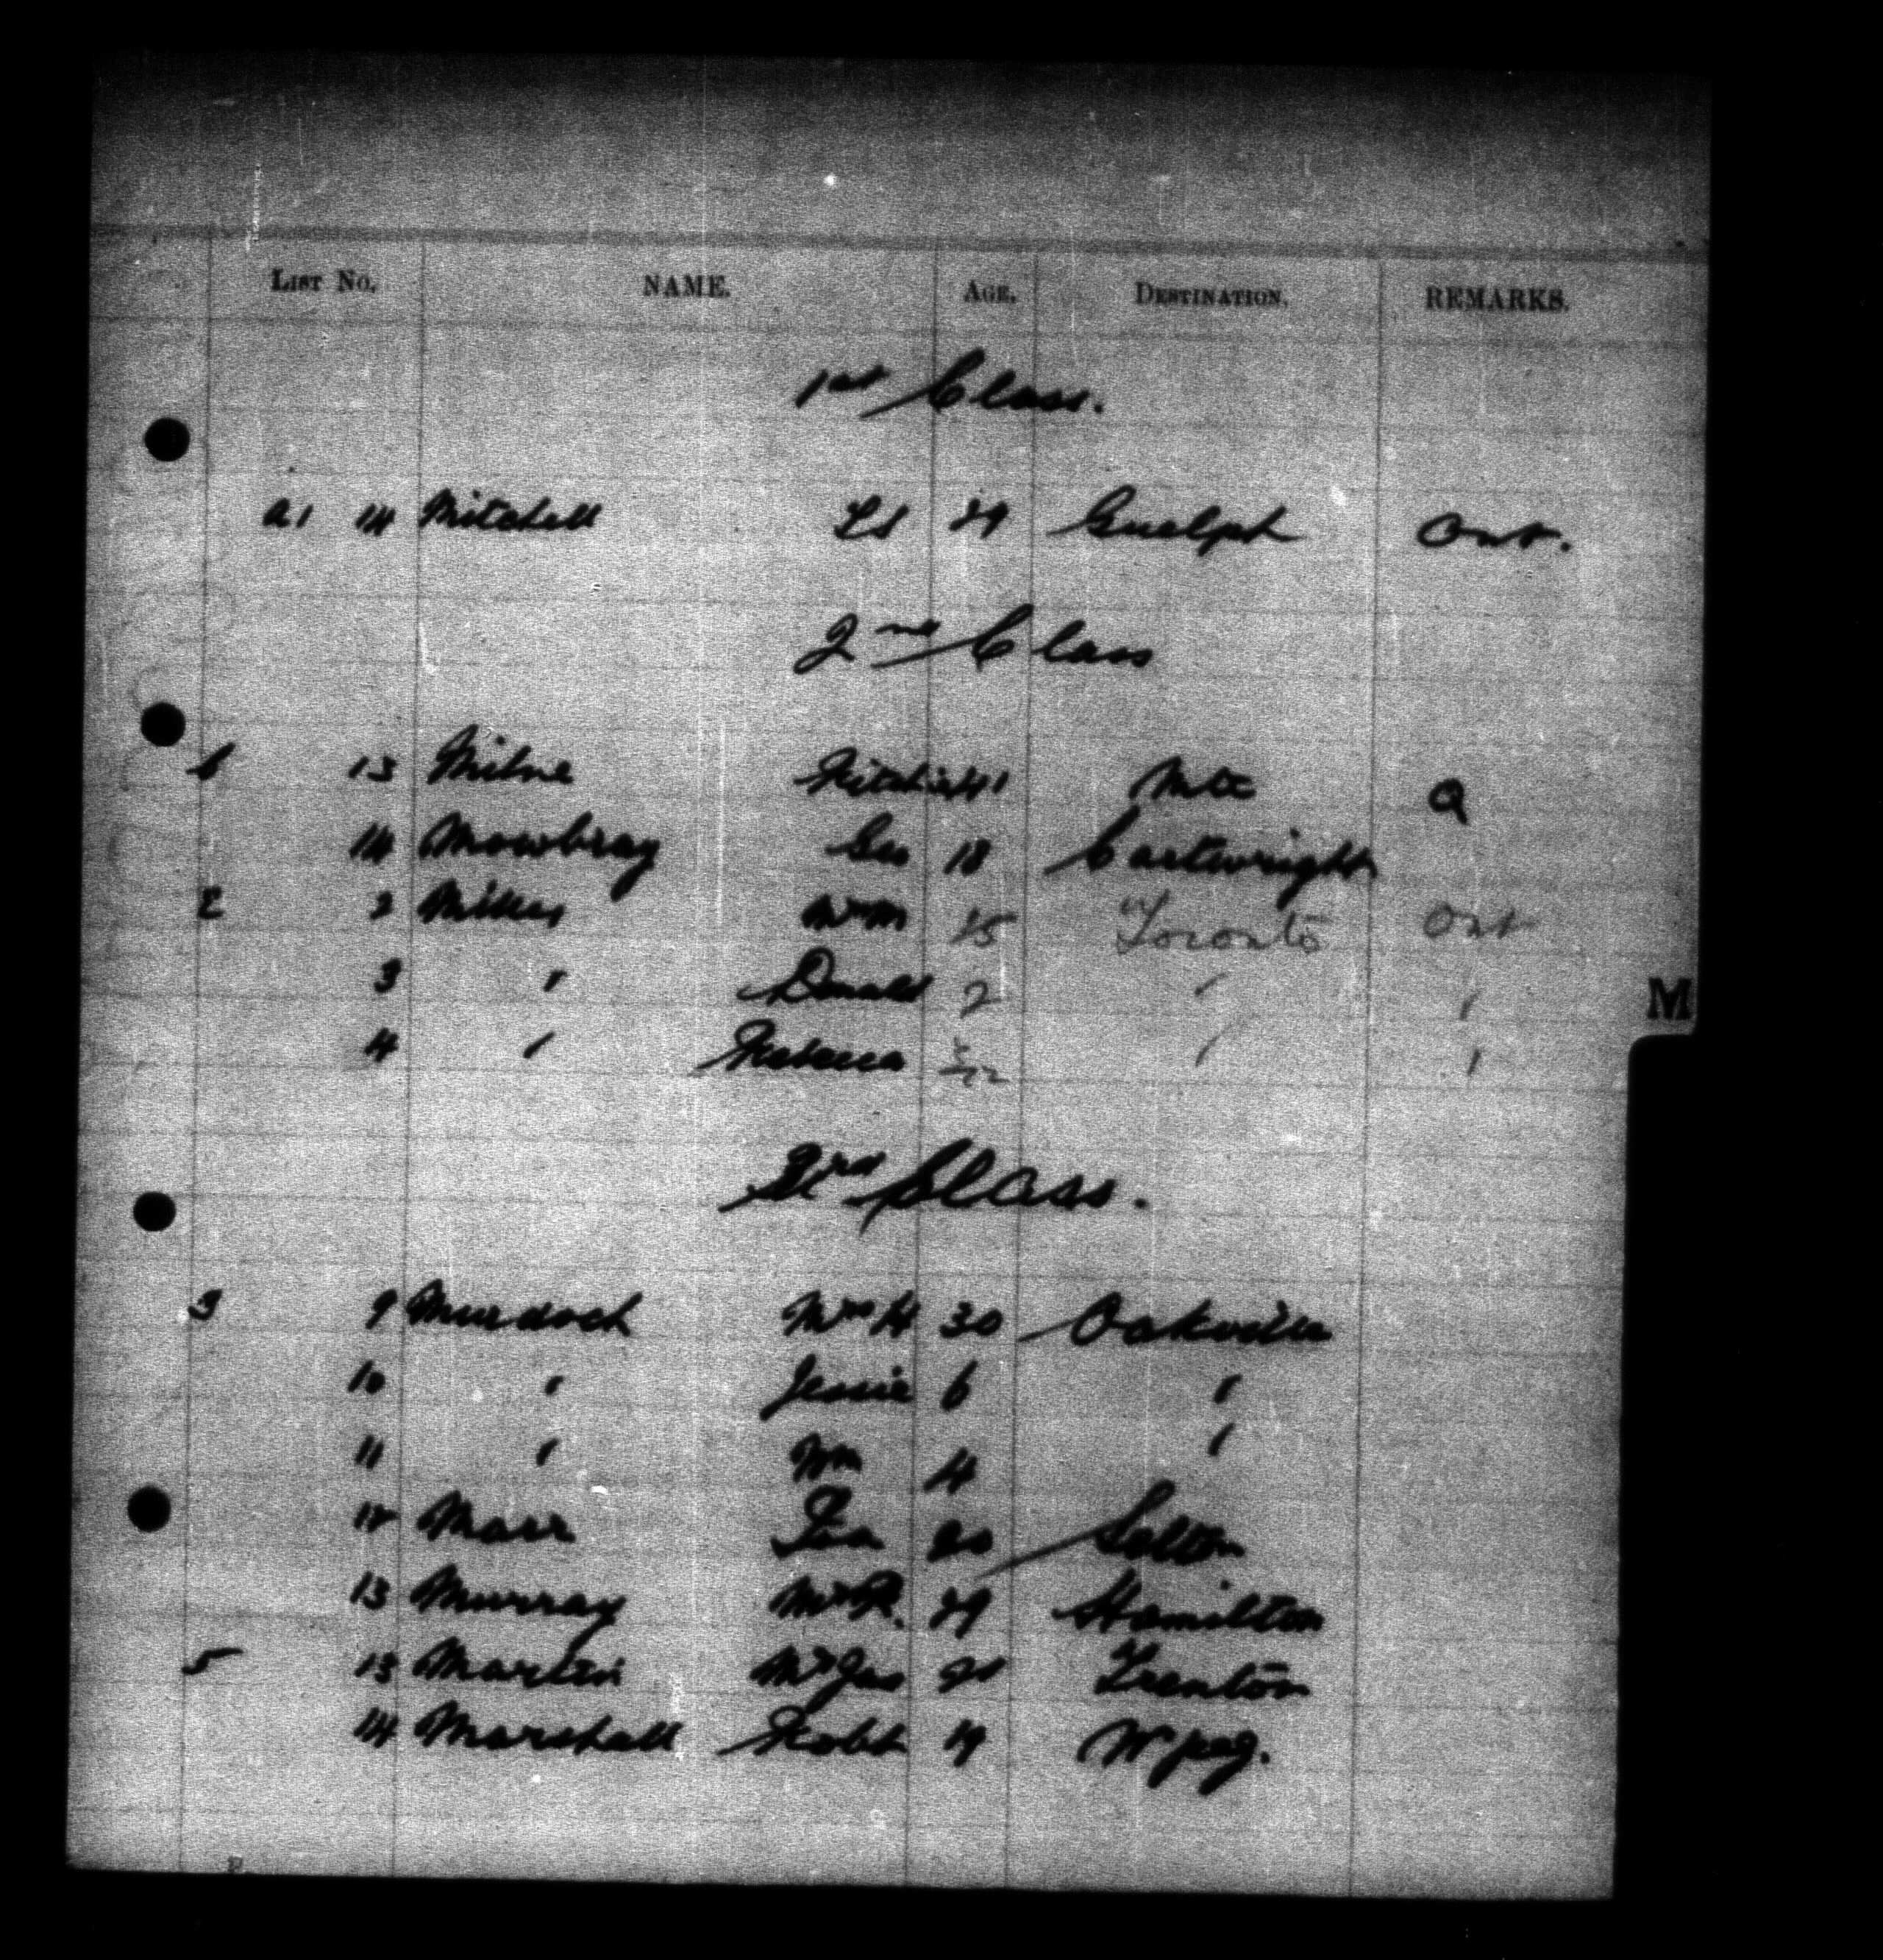 LIST NO. NAME. AGE. DESTINATION. REMARKS.
1st Class.
a1 14 Mitchell 29 Guelph Ont.
2nd Class
6 13 Milne Ritchie 41 Mtc Q
14 Mowbray Geo 18 Cartwright
2 2 Miller Wm Toronto Ont
3 " Donald 2 " "
4 " Rebecca " "
3rd Class.
3 9 Murdoch Mrs H 30 Oakville
10 " Jessie 6 "
11 " Wm 4 "
12 Marr 20
13 Murray Mr R. 29 Hamilton
5 13 Martin Mr Jas Trenton
14 Marshall Robt 19 Wpeg.
M